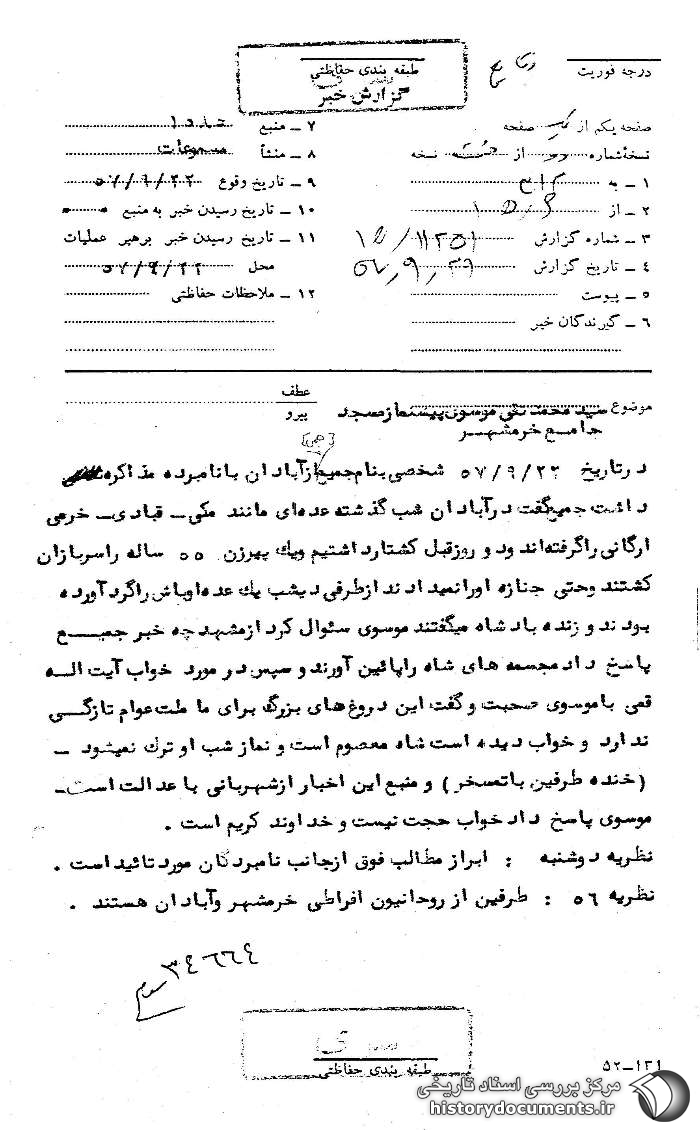 درجه فوریت
طبقه بندی حفاظتی
گزارش خبر
صفحه یکم از یک صفحه
نسخهٔ شماره از نسخه
۱ ـ به
۲ ـ از
۳ ـ شماره گزارش
۴ ـ تاریخ گزارش
۵ ـ پیوست
۶ ـ گیرندگان خبر
۷ ـ منبع
۸ ـ منشأ مسموعات
۹ ـ تاریخ وقوع ۵۷/۹/۲۲
۱۰ ـ تاریخ رسیدن خبر به منبع
۱۱ ـ تاریخ رسیدن خبر برهبر عملیات
محل ۵۷/۹/۲۲
۱۲ ـ ملاحظات حفاظتی
موضوع سید محمد تقی موسوی پیشنماز مسجد
جامع خرمشهر
عطف
پیرو
[جمی]
در تاریخ ۵۷/۹/۲۲ شخصی بنام جمیع از آبادان با نامبرده مذاکره
داشت جمیع گفت در آبادان شب گذشته عده‌ای مانند مکی ـ قبادی ـ خرمی
ارگانی را گرفته‌اند ود و روز قبل کشتار داشتیم ویك پهرزن ۵۵ ساله را سربازان
کشتند وحتی جنازه اورا نمیدادند از طرفی دیشب یك عده اوباش را گرد آورده
بودند و زنده باد شاه میگفتند موسوی سئوال کرد از مشهد چه خبر جمیع
پاسخ داد مجسمه های شاه را پائین آورند و سپس در مورد خواب آیت الله
قمی با موسوی صحبت و گفت این دروغ های بزرگ برای ما ملت عوام تازگی
ندارد و خواب دیده است شاه معصوم است و نماز شب او ترك نمیشود ـ
(خنده طرفین با تمسخر) و منبع این اخبار از شهربانی با عدالت است ـ
موسوی پاسخ داد خواب حجت نیست و خداوند کریم است .
نظریه دوشنبه : ابراز مطالب فوق از جانب نامبردگان مورد تائید است .
نظریه ۵۶ : طرفین از روحانیون افراطی خرمشهر و آبادان هستند .
۳۴۶۶۴
طبقه بندی حفاظتی
۵۲-۱۳۱
مرکز بررسی اسناد تاریخی
historydocuments.ir